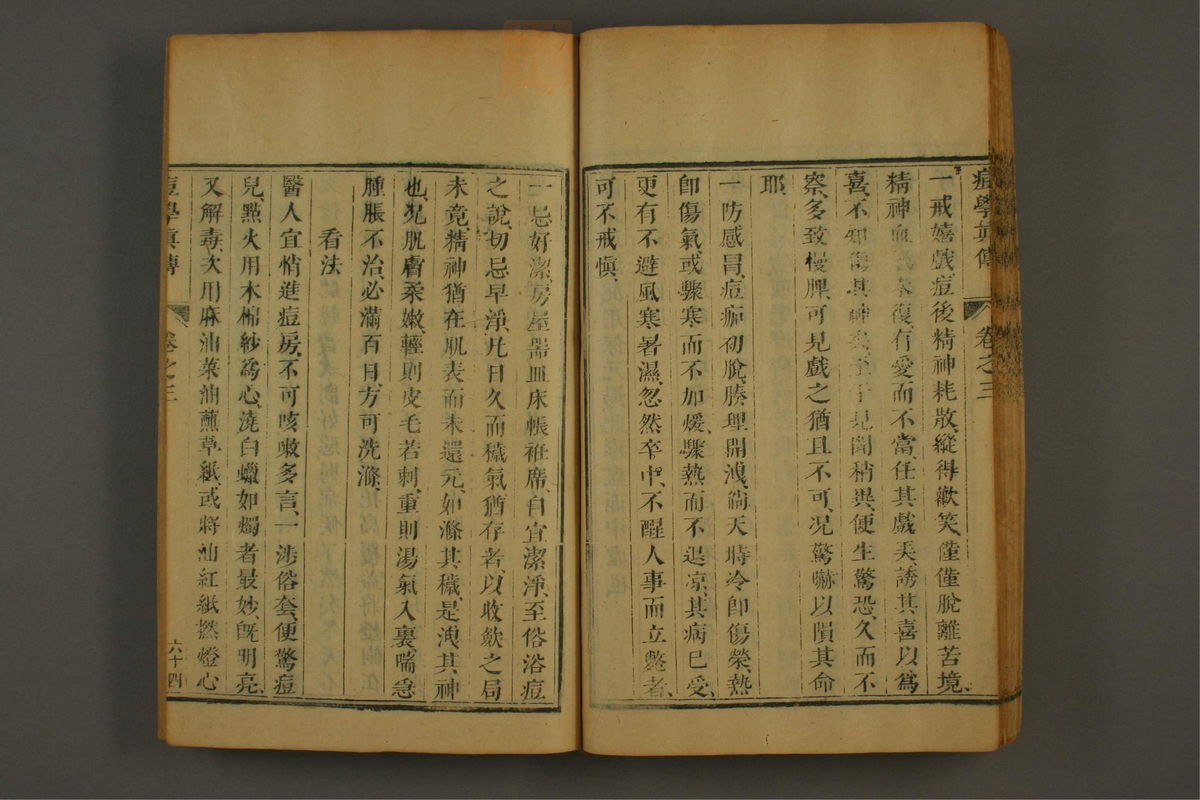 痘學眞傳 卷之三
一戒嬉戲痘後精神耗散縱得歡笑僅僅脫離苦境
精神血未復有愛而不當任其戲美誘其喜以爲
喜不知傷其神矣至于見聞稍異便生驚恐久而不
察多致慢脾可見戲之猶且不可况驚嚇以隕其命
耶
一防感冒痘痂初脫腠理開洩倘天時冷卽傷榮熱
卽傷氣或驟寒而不加煖驟熱而不退凉其病已受
更有不避風寒暑濕忽然卒中不醒人事而立斃者
可不戒愼
一忌好潔房屋器皿床帳袵席自宜潔淨至俗浴痘
之說切忌早淨凡日久而穢氣猶存者以收歛之局
未竟精神猶在肌表而未還元如滌其穢是洩其神
也况肌膚柔嫩輕則皮毛若刺重則湯氣入裏喘急
腫脹不治必滿百日方可洗滌
看法
醫人宜悄進痘房不可咳嗽多言一涉俗套便驚痘
兒點火用木棉紗爲心澆白蠟如燭者最妙旣明亮
又解毒次用麻油菜油蘸草紙或將油紅紙撚燈心
痘學眞傳 卷之三 六十四